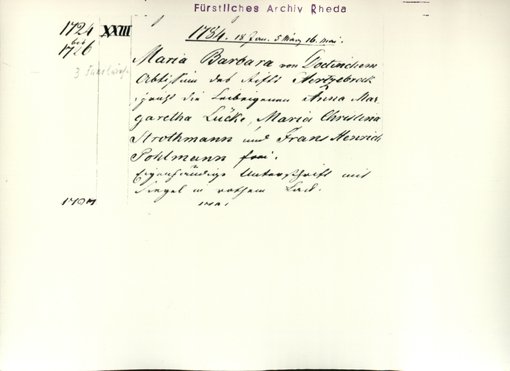 Fürstliches Archiv Rheda
1724 XXIII 1734. 18 Jan. 5 März 16. Mai.
bis
1726
Maria Barbara von
Abtissin des Stifts Hertzebrock
3
spricht die Leibeigenen Anna Mar
garetha Lücke, Maria Christena
Strothmann und Frans Henrich
Pohlmann frei.
Eigenhändige Unterschrift mit
Siegel in rothem Lack.